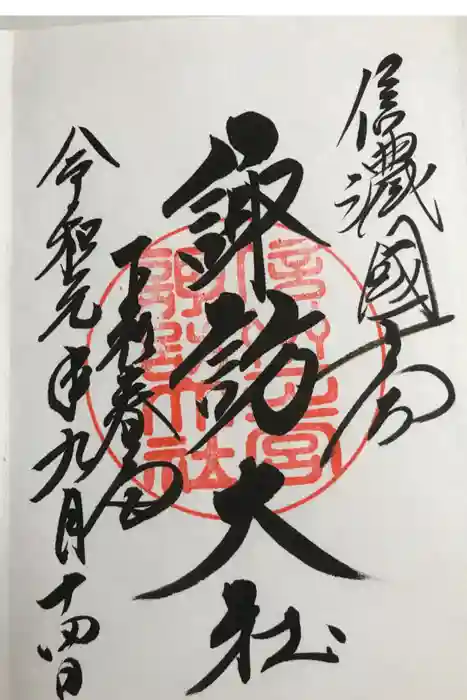 信濃國一宮
諏訪大社
下社春宮
令和元年九月十四日